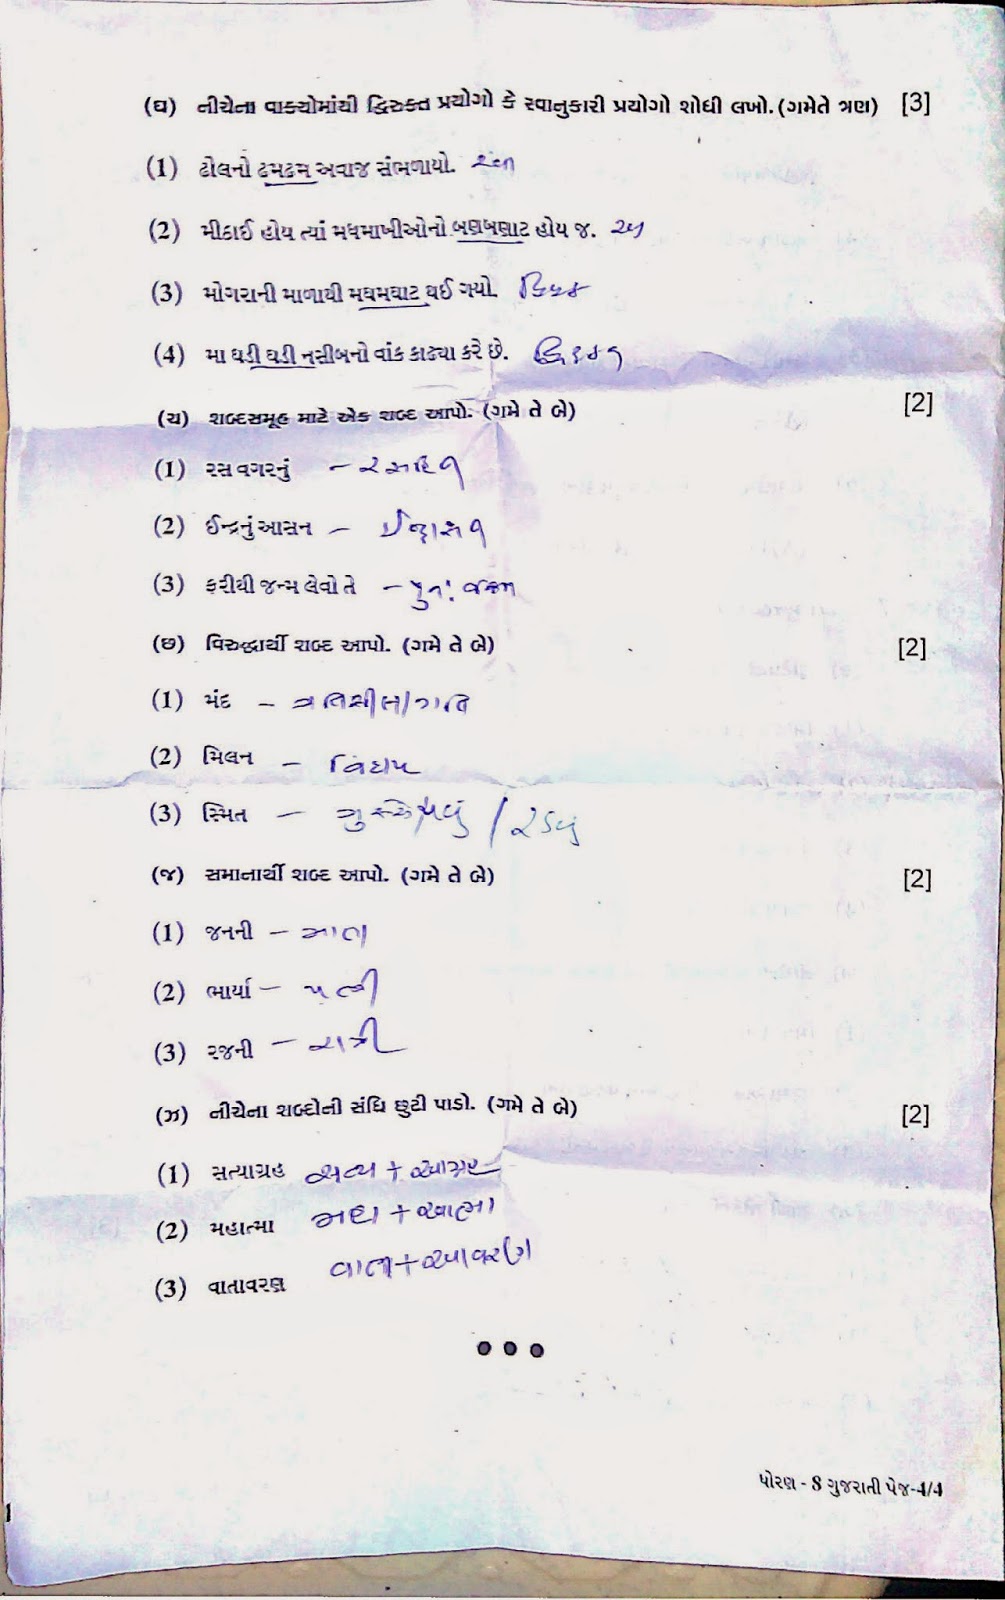 (ઘ) નીચેના વાક્યોમાંથી દ્વિરુક્ત પ્રયોગો કે રવાનુકારી પ્રયોગો શોધી લખો. (ગમેતે ત્રણ) [3]
(1) ઢોલનો ઢમઢમ અવાજ સંભળાયો.
(2) મીઠાઈ હોય ત્યાં મધમાખીઓનો બણબણાટ હોય જ.
(3) મોગરાની માળાથી મઘમઘાટ થઈ ગયો.
(4) મા ઘડી ઘડી નસીબનો વાંક કાઢ્યા કરે છે.
(ચ) શબ્દસમૂહ માટે એક શબ્દ આપો. (ગમે તે બે) [2]
(1) રસ વગરનું – રસહિન
(2) ઈન્દ્રનું આસન – ઈન્દ્રાસન
(3) ફરીથી જન્મ લેવો તે – પુનઃજન્મ
(છ) વિરુદ્ધાર્થી શબ્દ આપો. (ગમે તે બે) [2]
(1) મંદ –
(2) મિલન –
(3) સ્મિત – / રડવું
(જ) સમાનાર્થી શબ્દ આપો. (ગમે તે બે) [2]
(1) જનની – માતા
(2) ભાર્યા – પત્ની
(3) રજની – રાત્રી
(ઝ) નીચેના શબ્દોની સંધિ છુટી પાડો. (ગમે તે બે) [2]
(1) સત્યાગ્રહ સત્ય + આગ્રહ
(2) મહાત્મા મહા + આત્મા
(3) વાતાવરણ વાત + આવરણ
● ● ●
ધોરણ - 8 ગુજરાતી પેજ-4/4